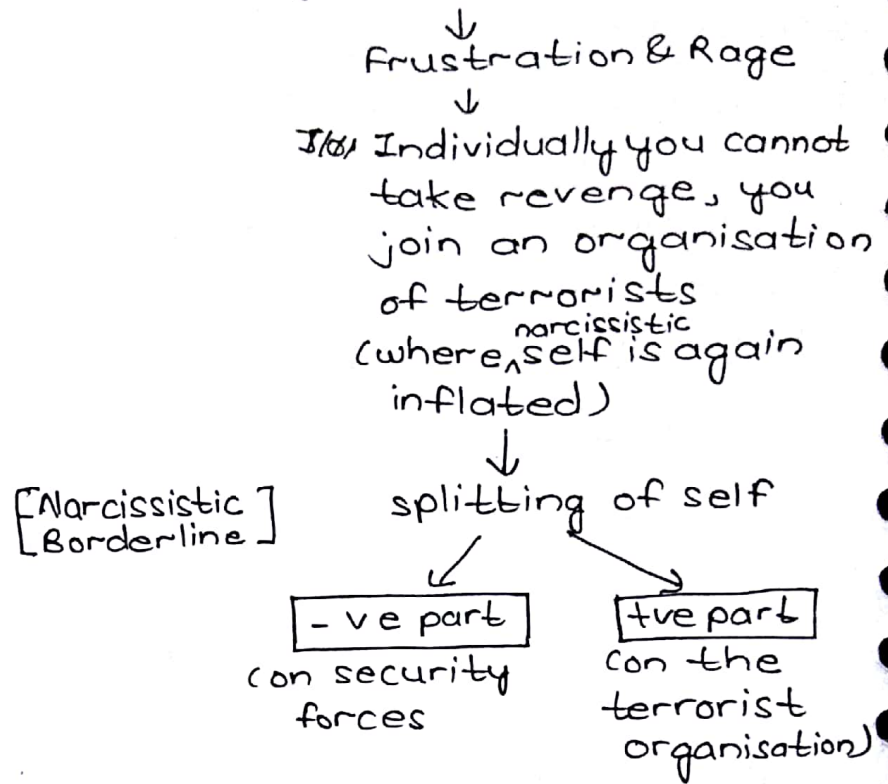 ↓
Frustration & Rage
↓
Individually you cannot
take revenge, you
join an organisation
of terrorists
narcissistic
(where ^ self is again
inflated)
↓
[Narcissistic]
[Borderline]
splitting of self
- ve part
+ve part
(on security
forces
(on the
terrorist
organisation)